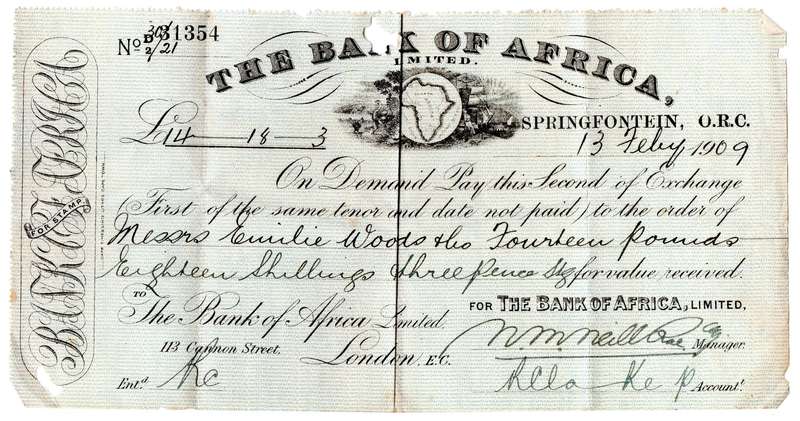 No. D 31354
30/
2/21
THE BANK OF AFRICA,
LIMITED.
SPRINGFONTEIN, O.R.C.
£14 — 18 — 3
13 Feby 1909
On Demand Pay this Second of Exchange
(First of the same tenor and date not paid) to the order of
Messrs Emilie Woods & Co Fourteen Pounds
Eighteen Shillings & three pence Stg for value received.
TO
The Bank of Africa Limited,
113 Cannon Street,
London, E.C.
FOR THE BANK OF AFRICA, LIMITED,
Manager.
Entd.
Accountt.
BANK OF AFRICA
FOR STAMP